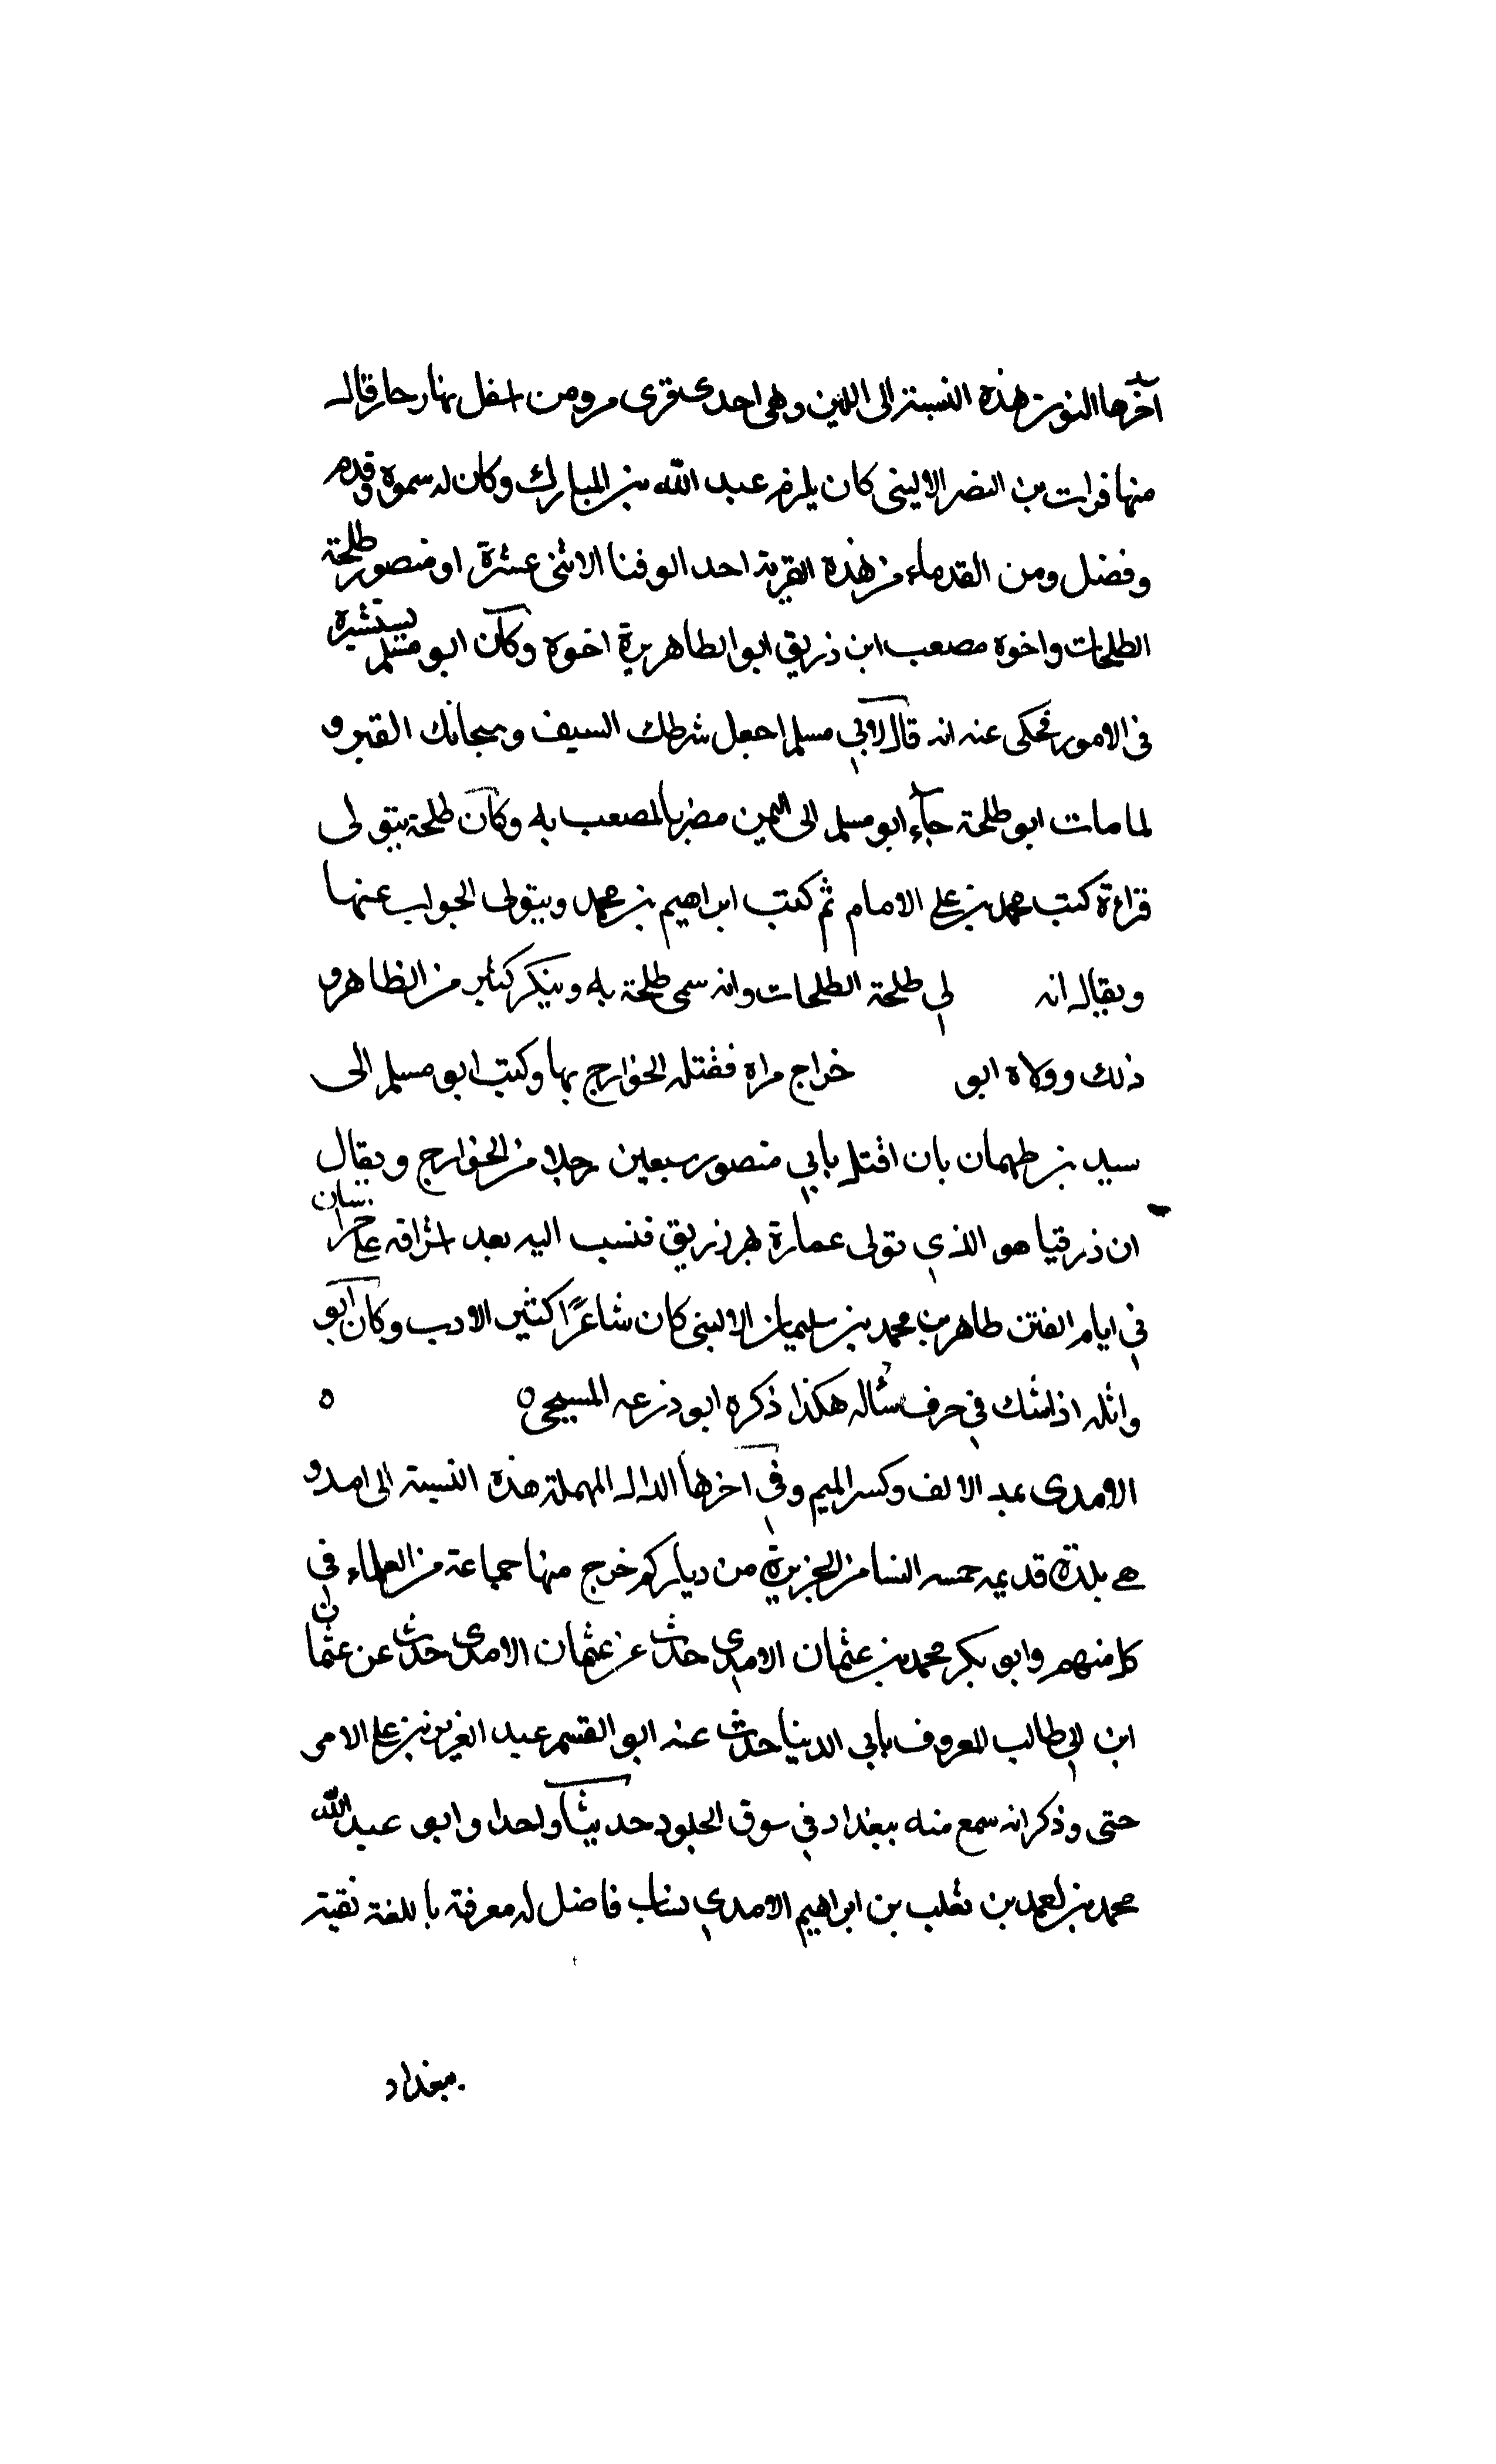 آخرها النون هذه النسبة الى اللين وهي احدى قرى مرو من اسفل نهار حار قال
منها فرات بن النضر الاليني كان يلزم عبد الله بن المبارك وكان له سموه وقدم
وفضل ومن القدماء من هذه القرية احد الوفنا الاثنى عشرة او منصور طلحة
الطلحات واخوه مصعب ابن ذريق ابو الطاهرية اخوه وكان ابو مسلم يستشيره
في الامور فحكى عنه انه قال لابي مسلم اجعل شرطك السيف وسجانك القبر و
لما مات ابو طلحة جاء ابو مسلم الى اليمن مضربا لمصعب به وكان طلحة يتولى
قراءة كتب محمد بن علي الامام ثم كتب ابراهيم بن محمد ويتولى الجواب عنها
ويقال انه لي طلحة الطلحات وانه سمى طلحة به وينكر كثير من الظاهر و
ذلك وولاه ابو خراج مراه فقتله الخوارج بها وكتب ابو مسلم الى
سيد بن طهمان بان اقتل بابي منصور سبعين رجلا من الخوارج ويقال
ان ذرقيا هو الذي تولى عمارة نهر ذريق فنسب اليه بعد اشراقه على خراسان
في ايام الفتن طاهر بن محمد بن سليمان الاليني كان شاعرًا كثير الادب وكان ابو
واثله اذا شك في حرف ساله هكذا ذكره ابو ذرعه المسيحي ه ه
الامدى بمد الالف وكسر الميم وفي اخرها الدال المهملة هذه النسبة الى امد و
هي بلدة قديمه حسنه النسا من الجزيرة من ديار بكر خرج منها جماعة من العلماء في
كل منهم وابو بكر محمد بن عثمان الامدي حدث عن عثمان الامدى حدث عن عثمان
ابن ابي طالب المعروف بابي الدنيا حدث عنه ابو القسم عبد العزيز بن علي الامر
حتى وذكر انه سمع منه ببغداد في سوق الجلود حديثًا واحدا وابو عبد الله
محمد بن احمد بن تغلب بن ابراهيم الامدي شاب فاضل له معرفة باللغة نقيته
ببغداد